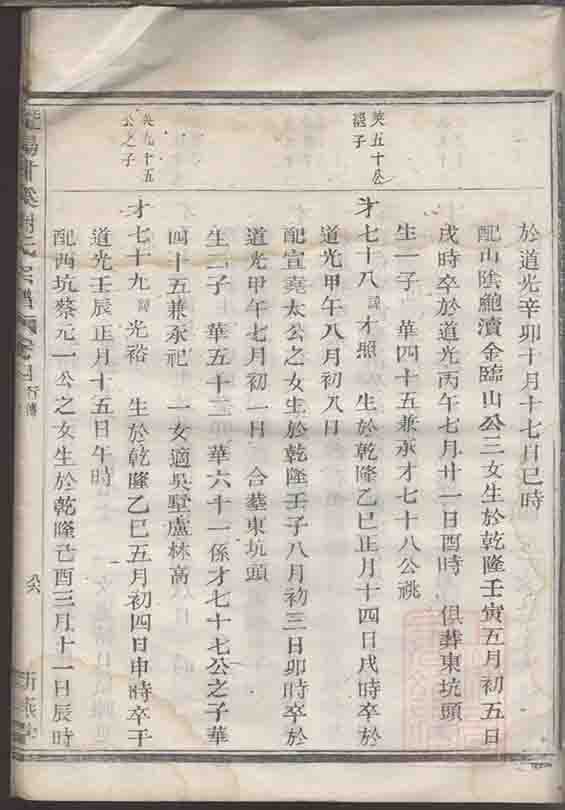 於道光辛卯十月十七日巳時
配山陰鮑瀆金臨山公三女生於乾隆壬寅五月初五日
戌時卒於道光丙午七月廿一日酉時 俱葬東坑頭
生一子 華四十五兼承才七十八公祧
英五十公
諡子
才七十八 諱才照 生於乾隆乙巳正月十四日戌時卒於
道光甲午八月初八日
配宣堯太公之女生於乾隆壬子八月初三日卯時卒於
道光甲午七月初一日 合塟東坑頭
生二子 華五十三 華六十一係才七十七公之子華
四十五兼承祀 一女適吳墅盧林高
英九十五
公之子
才七十九 諱光裕 生於乾隆乙巳五月初四日申時卒于
道光壬辰正月十五日午時
配西坑蔡元一公之女生於乾隆己酉三月十一日辰時